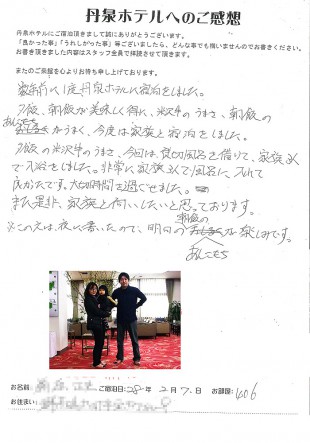 丹泉ホテルへのご感想
丹泉ホテルにご宿泊頂きまして誠にありがとうございます。
「良かった事」「うれしかった事」等ございましたら、どんな事でも構いませんのでお書きください。
お書き頂きました内容はスタッフ全員で拝読させて頂きます。
またのご来館を心よりお待ち申し上げております。
数年前に1度丹泉ホテルに宿泊をしました。
夕飯、朝飯が美味しく特に、米沢牛のうまさ、朝飯の
あんこもち
がうまく、今度は家族と宿泊をしました。
夕飯の米沢牛のうまさ、今回は貸切風呂を借りて、家族
で入浴をしました。非常に家族で風呂に入れて
良かったです。大切な時間を過ごせました。
また是非、家族と伺いしたいと思っております。
※この文は、夜に書いたので、明日の朝飯の
が楽しみです。
あんこもち
お名前:
ご宿泊日:28年 2月 7日
お部屋:406
お住まい: